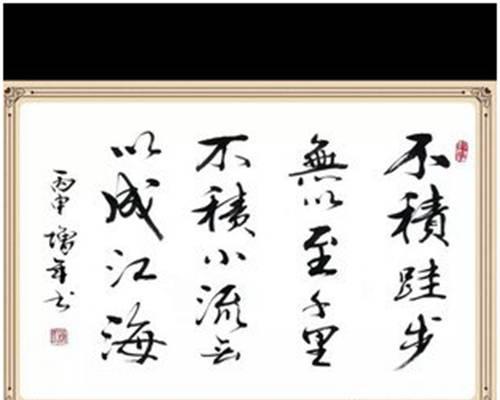 不積跬步
無以至千里
不積小流无
以成江海
丙申 书